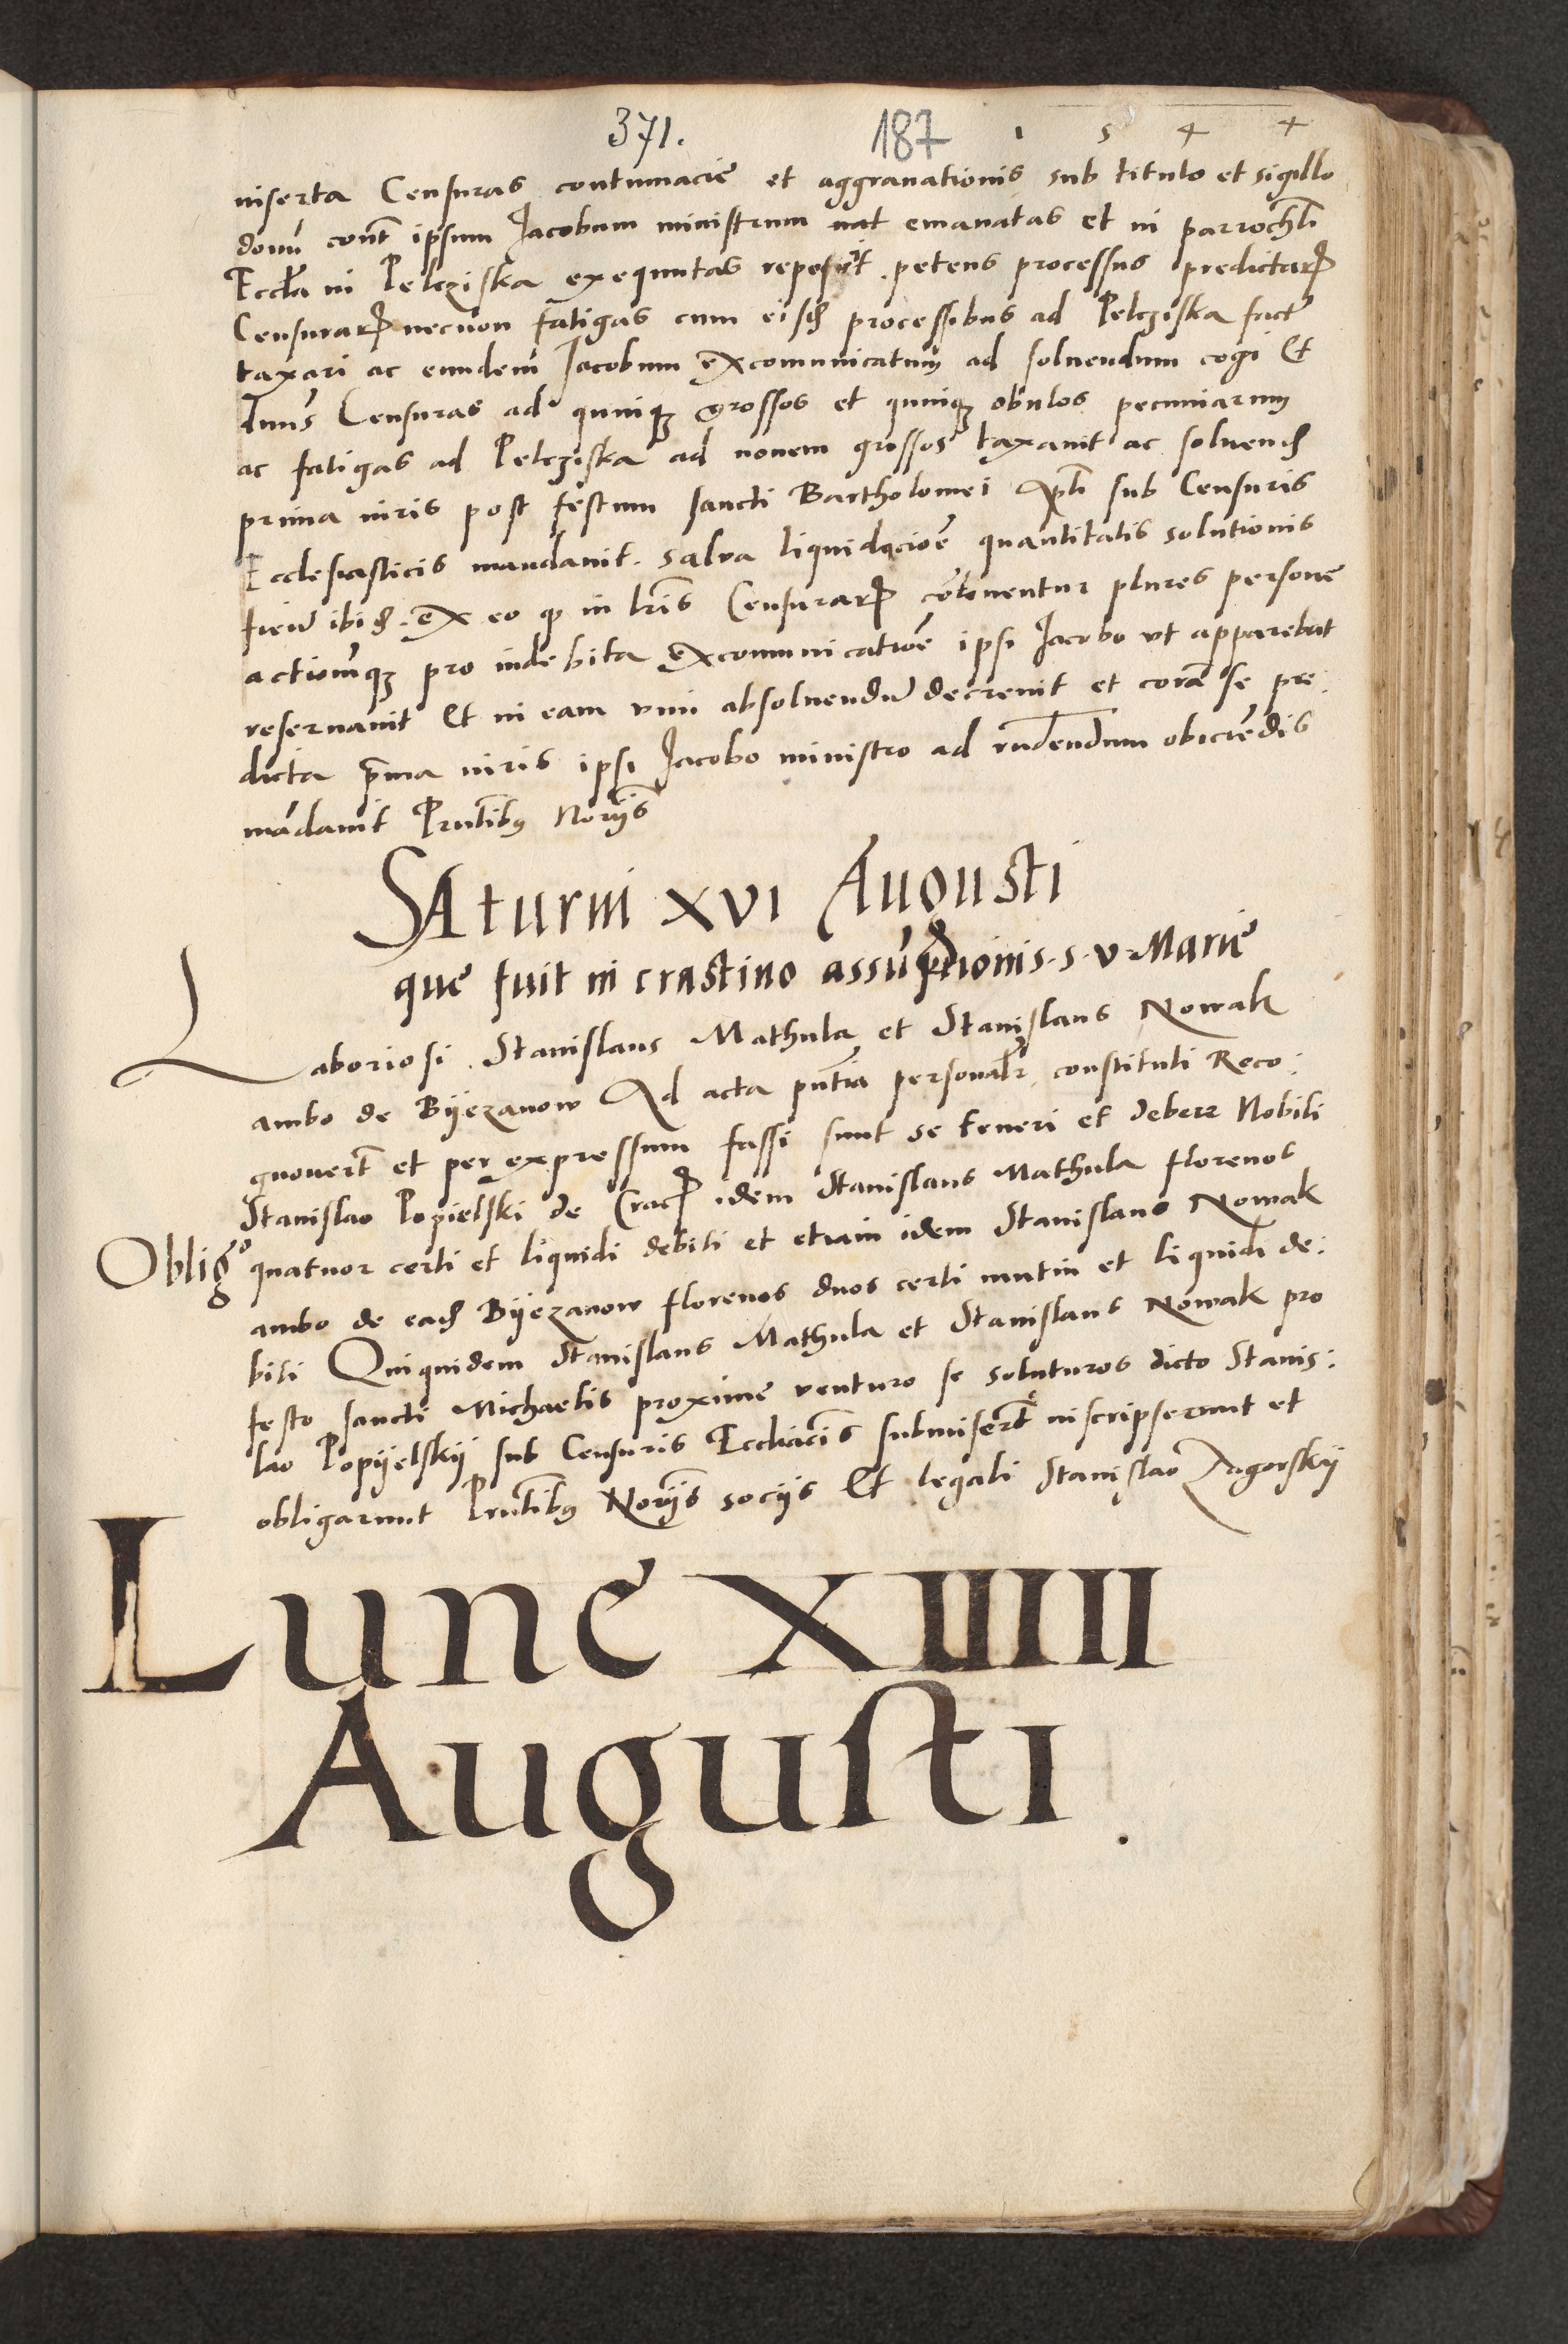 371. 187 1 5 4 4
inserta Censuras contumacie et aggravationis sub titulo et sigillo
domi cont ipsum Jacobum ministrum emanatas et in parrochli
Eccla in Pelcziska exequutas reposuit. petens processus predictar
Censurar necnon fatigas cum eisd processibus ad Pelcziska fact
taxari ac eundem Jacobum excomunicatum ad solvendum cogi Et
Dnus Censuras ad quinq grossos et quinq obulos pecuniarum
ac fatigas ad Pelcziska ad novem grossos taxavit ac solvend
prima iuris post festum sancti Bartholomei Apli sub Censuris
Ecclesiasticis mandavit. salva liquidacioe quantitatis solutionis
ibid. Ex eo q in lris Censurar continentur plures persone
actionemq pro indebita excomunicatioe ipsi Jacobo ut apparebat
reservavit Et in eam vim absolvendu decrevit et cora se pre:
dicta pma iuris ipsi Jacobo ministro ad videndum obiciendis
madavit Pntibus Noriis
SAturni xvi Augusti
que fuit in crastino assuptionis. s. v. Marie
Laboriosi. Stanislaus Mathula et Stanislaus Nowak
ambo de Byezanow Ad acta pntia personalr constituti Reco:
gnovert et per expressum fassi sunt se teneri et debere Nobili
Stanislao Popielski de Crac idem Stanislaus Mathula florenos
Obligo quatuor certi et liquidi debiti et etiam idem Stanislaus Nowak
ambo de ead Byezanow florenos duos certi mutui et liquidi de:
biti Quiquidem Stanislaus Mathula et Stanislaus Nowak pro
festo sancti Michaelis proxime venturo se soluturos dicto Stanis:
lao Popyelskij sub Censuris Eccliacis submisert inscripserunt et
obligarunt Pntibus Noriis sociis Et legali Stanislao Zagorskij
Lune XIIIII
Augusti.